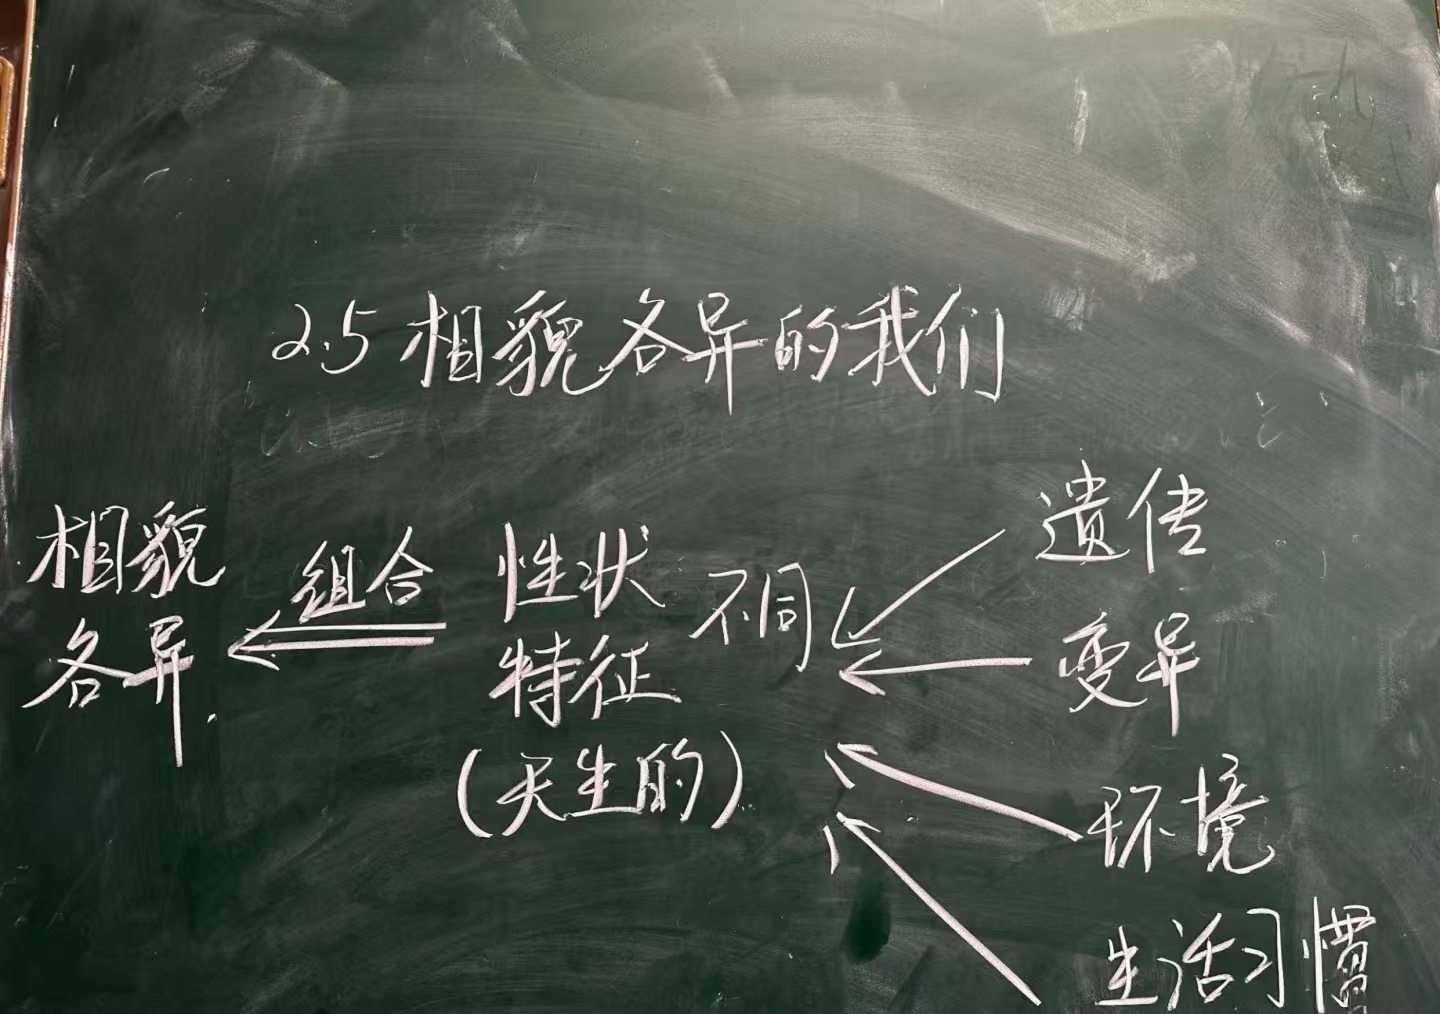 2.5 相貌各异的我们
相貌
各异
组合
性状
特征
(天生的)
不同
遗传
变异
环境
生活习惯